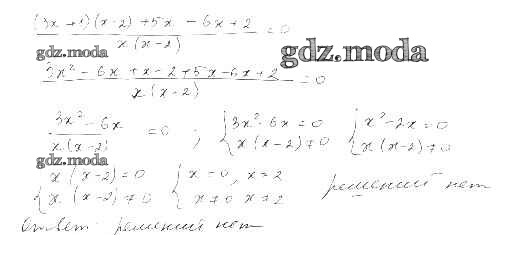 (3x+1)(x-2)+5x-6x+2 / x(x-2) = 0
gdz.moda
gdz.moda
3x²-6x+x-2+5x-6x+2 / x(x-2) = 0
3x²-6x / x(x-2) = 0 ; { 3x²-6x=0 x(x-2)≠0 { x²-2x=0 x(x-2)≠0
gdz.moda
{ x(x-2)=0 x(x-2)≠0 { x=0, x=2 x≠0 x≠2 решений нет
Ответ: решений нет